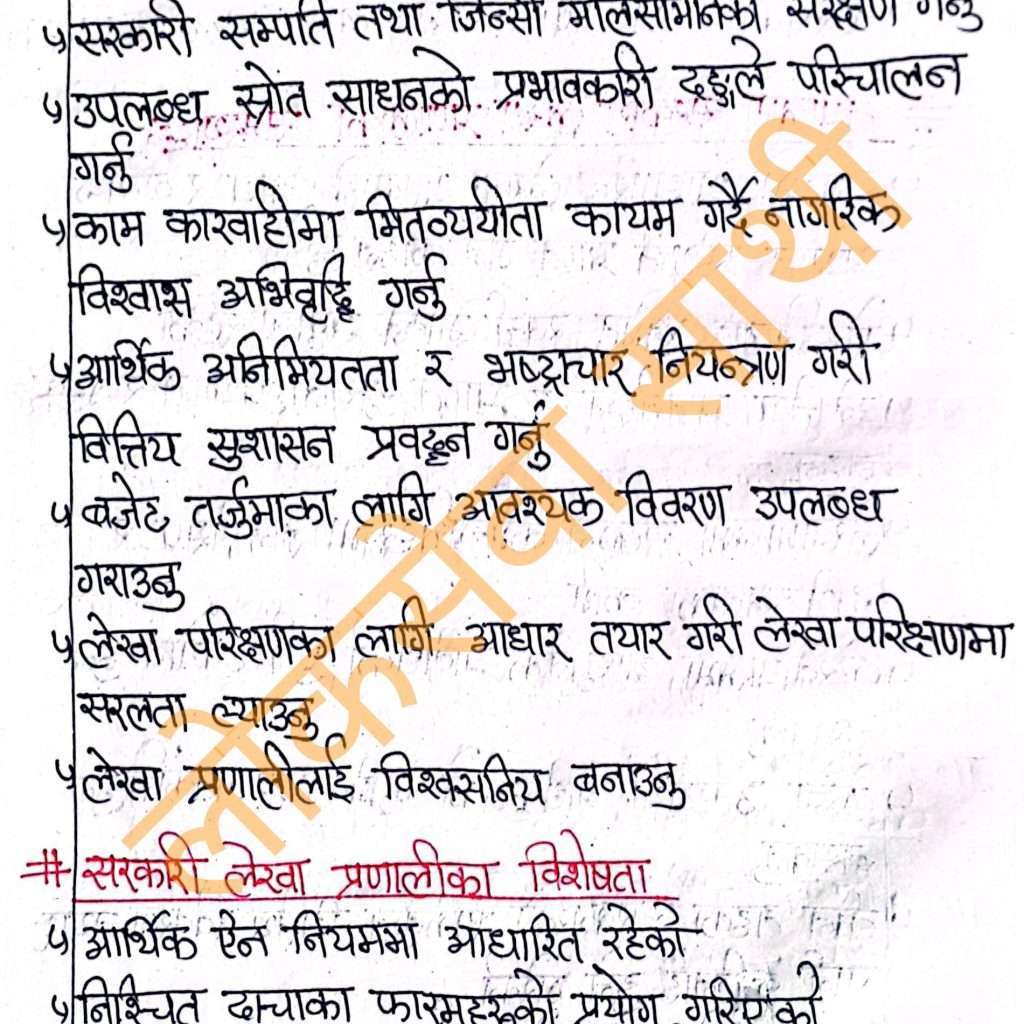 ५ सरकारी सम्पति तथा जिन्सी मालसामानको संरक्षण गर्नु
५ उपलब्ध स्रोत साधनको प्रभावकारी ढङ्गले परिचालन
गर्नु
५ काम कारवाहीमा मितव्ययीता कायम गर्दै नागरिक
विश्वास अभिवृद्धि गर्नु
५ आर्थिक अनिमियतता र भष्ट्राचार नियन्त्रण गरी
वित्तिय सुशासन प्रवद्धन गर्नु
५ बजेट तर्जुमाका लागि आवश्यक विवरण उपलब्ध
गराउनु
५ लेखा परिक्षणका लागि आधार तयार गरी लेखा परिक्षणमा
सरलता ल्याउनु
५ लेखा प्रणालीलाई विश्वसनिय बनाउनु
# सरकारी लेखा प्रणालीका विशेषता
५ आर्थिक ऐन नियममा आधारित रहेको
५ निश्चित ढाचाका फारमहरूको प्रयोग गरिएको
लोकसेवा साथी